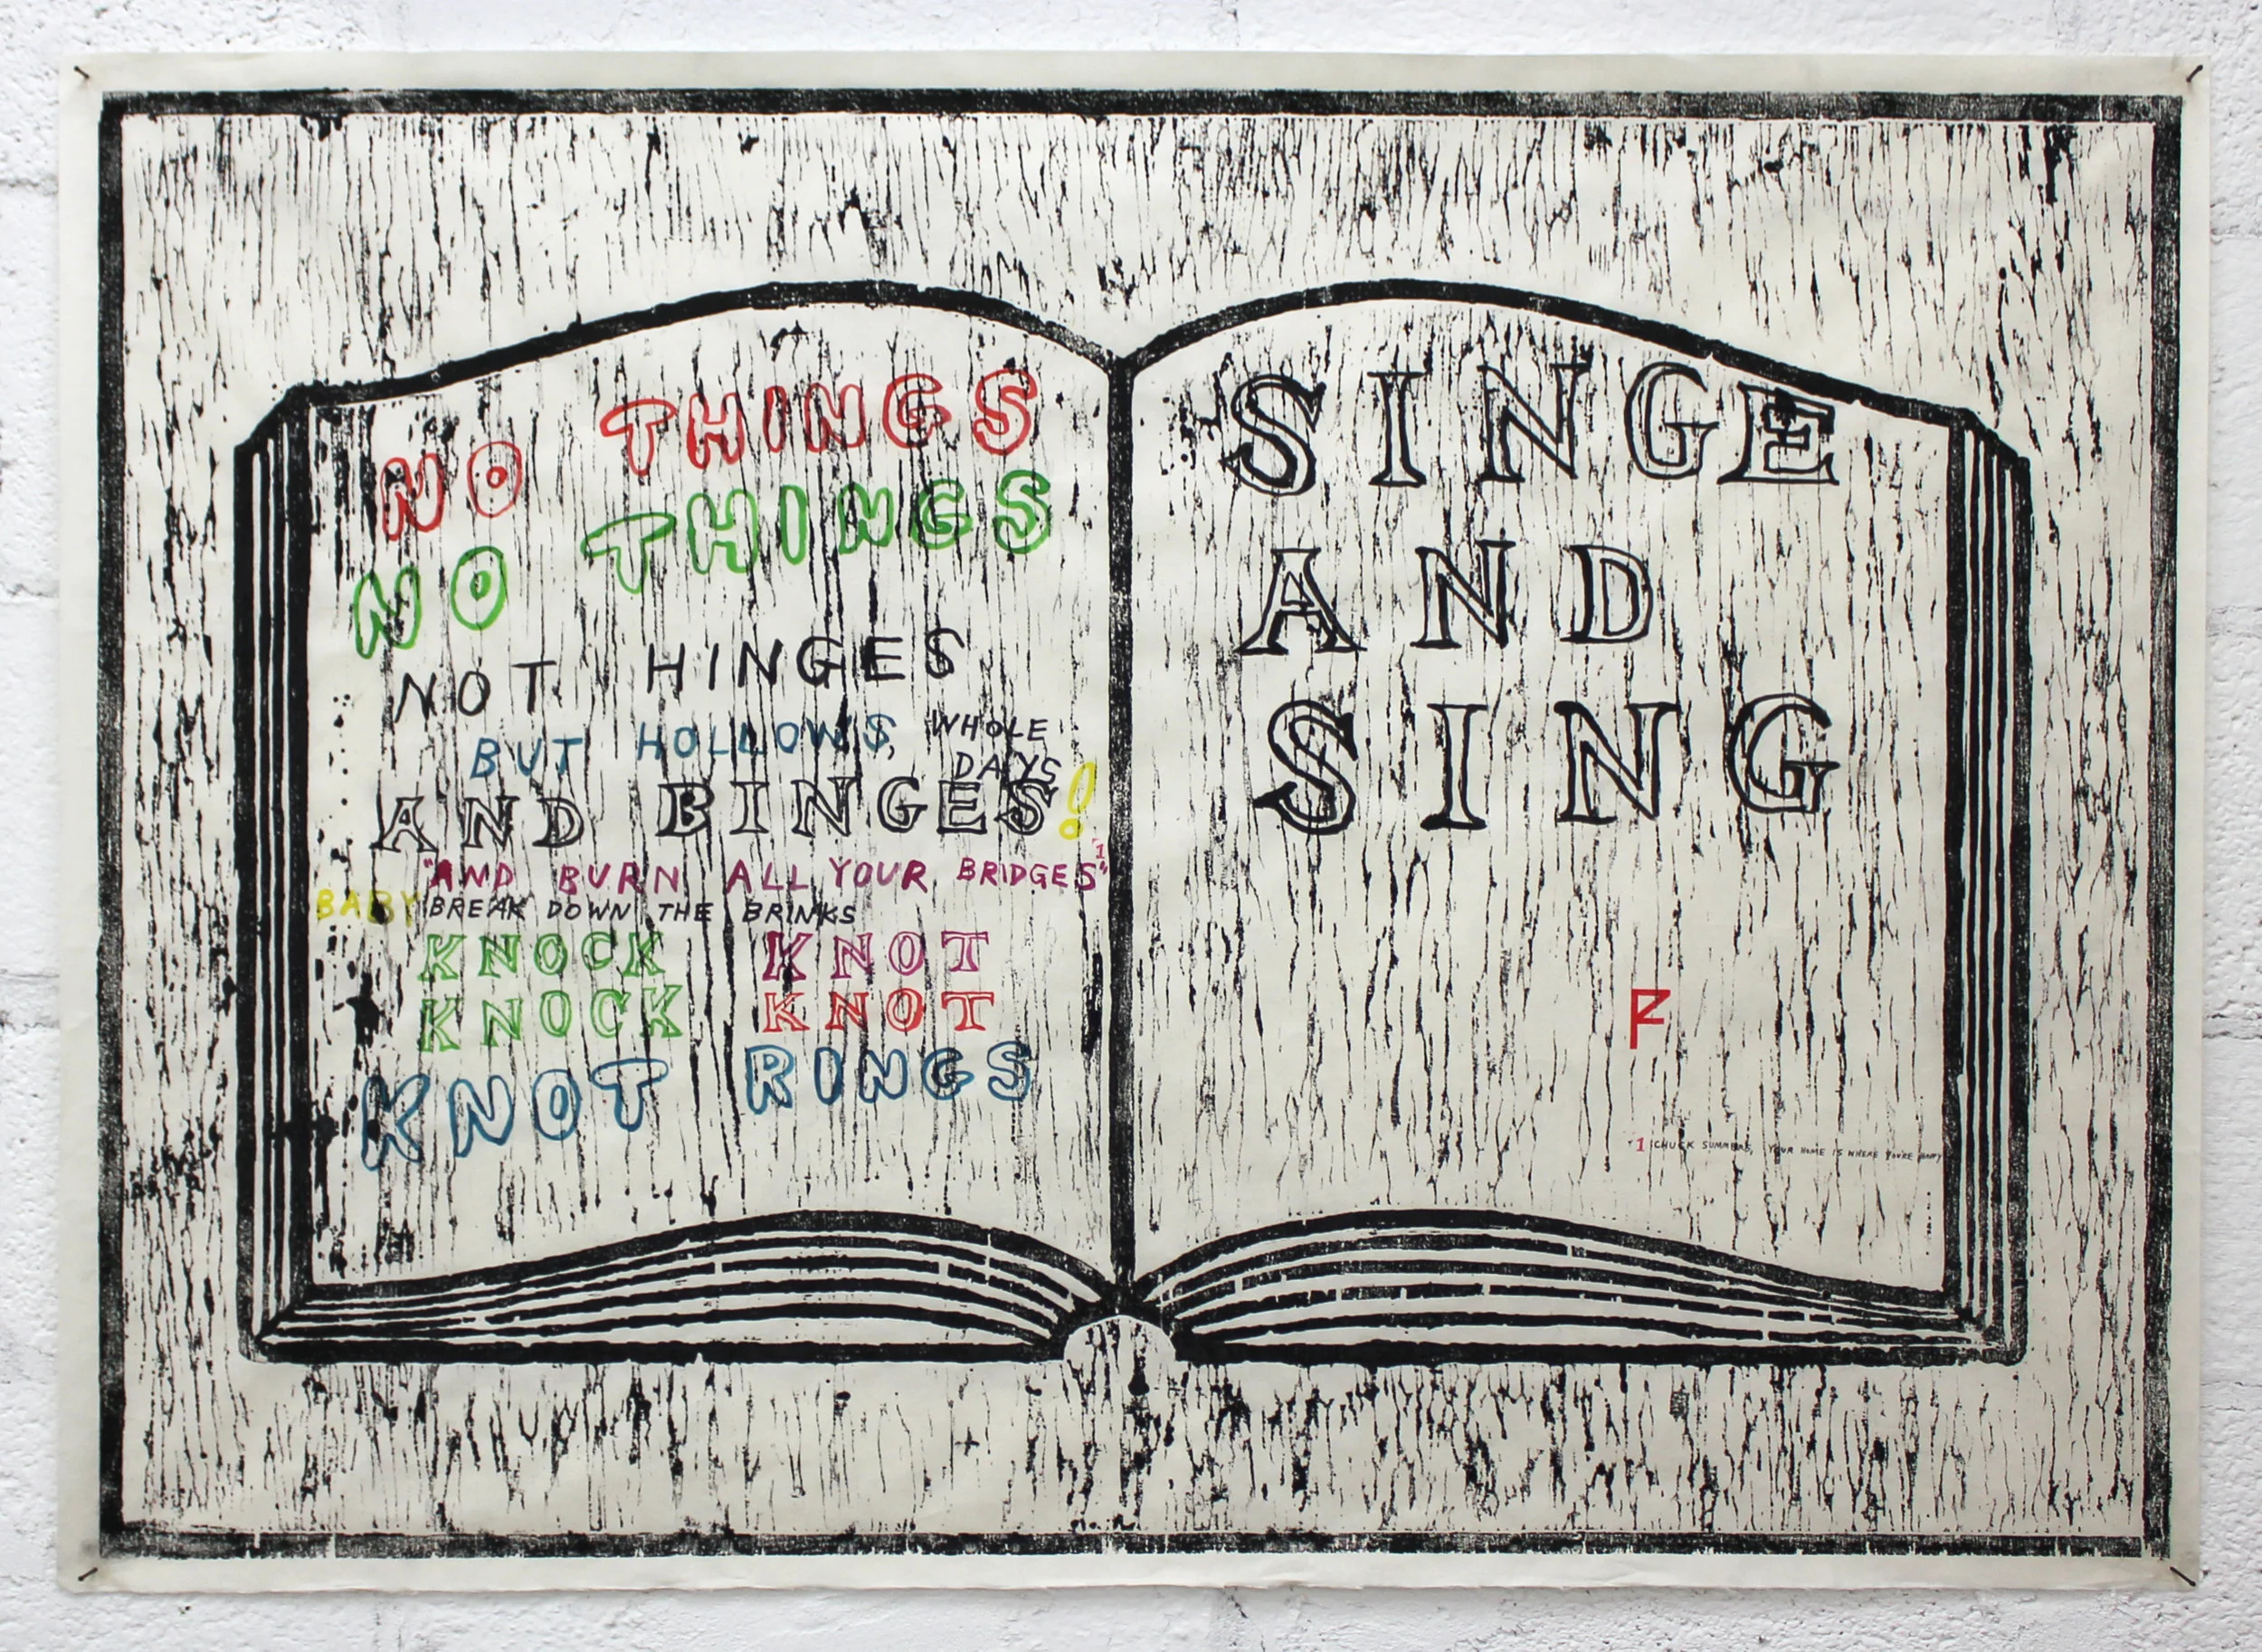 NO THINGS
NO THINGS
NOT HINGES
BUT HOLLOWS, WHOLE
DAYS
AND BINGES!
"AND BURN ALL YOUR BRIDGES"1
BABY BREAK DOWN THE BRINKS
KNOCK KNOT
KNOCK KNOT
KNOT RINGS
SINGE
AND
SING
1 CHUCK SUMMERS, YOUR HOME IS WHERE YOU'RE HAPPY